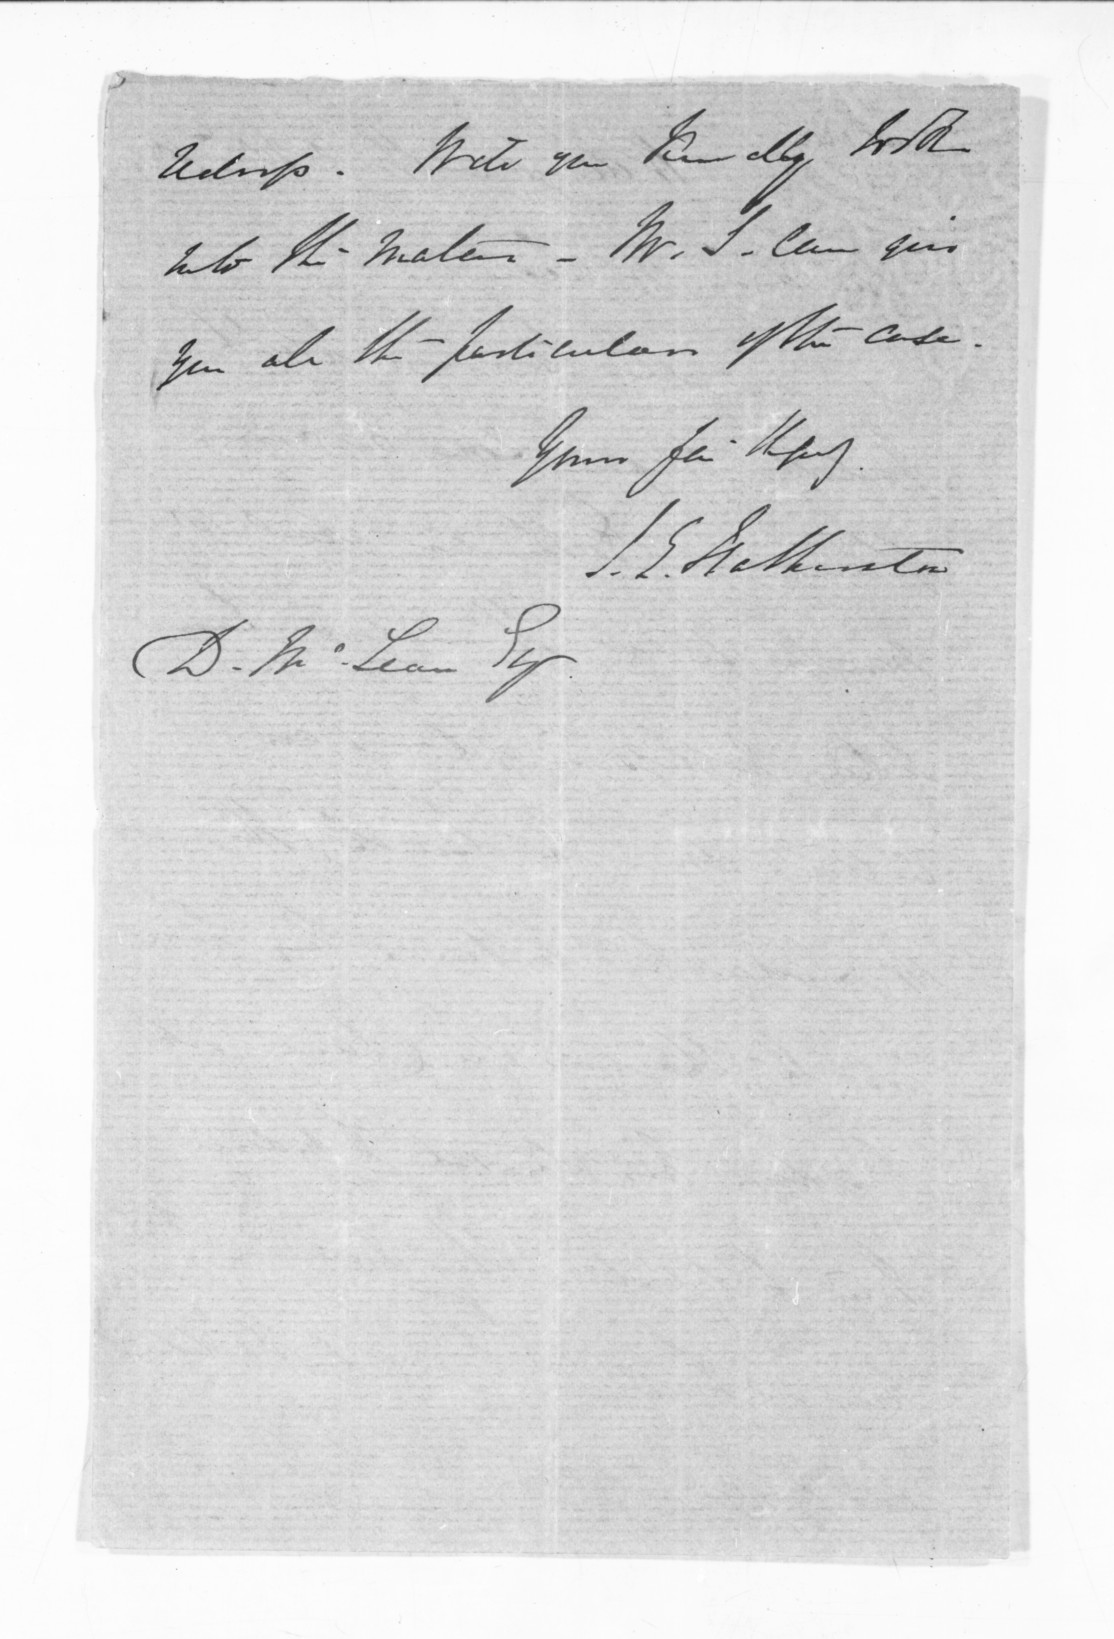 redress. Will you kindly look
into the matter - Mr. S. can give
you all the particulars of the case.
Yours faithfully
I. E. Featherston
D. McLean Esq.